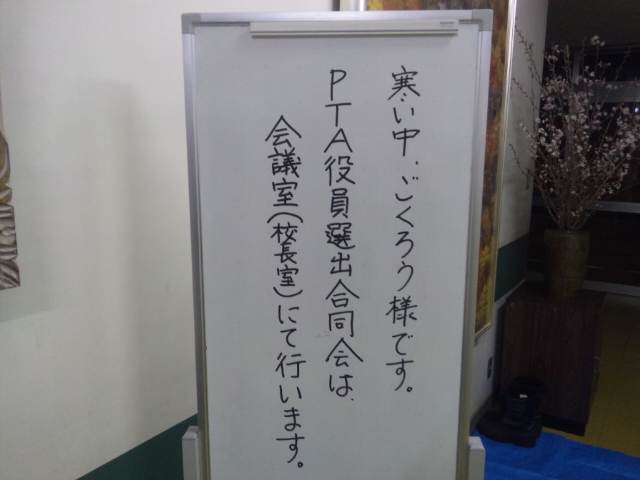 寒い中、ごくろう様です。
PTA役員選出合同会は、
会議室(校長室)にて行います。